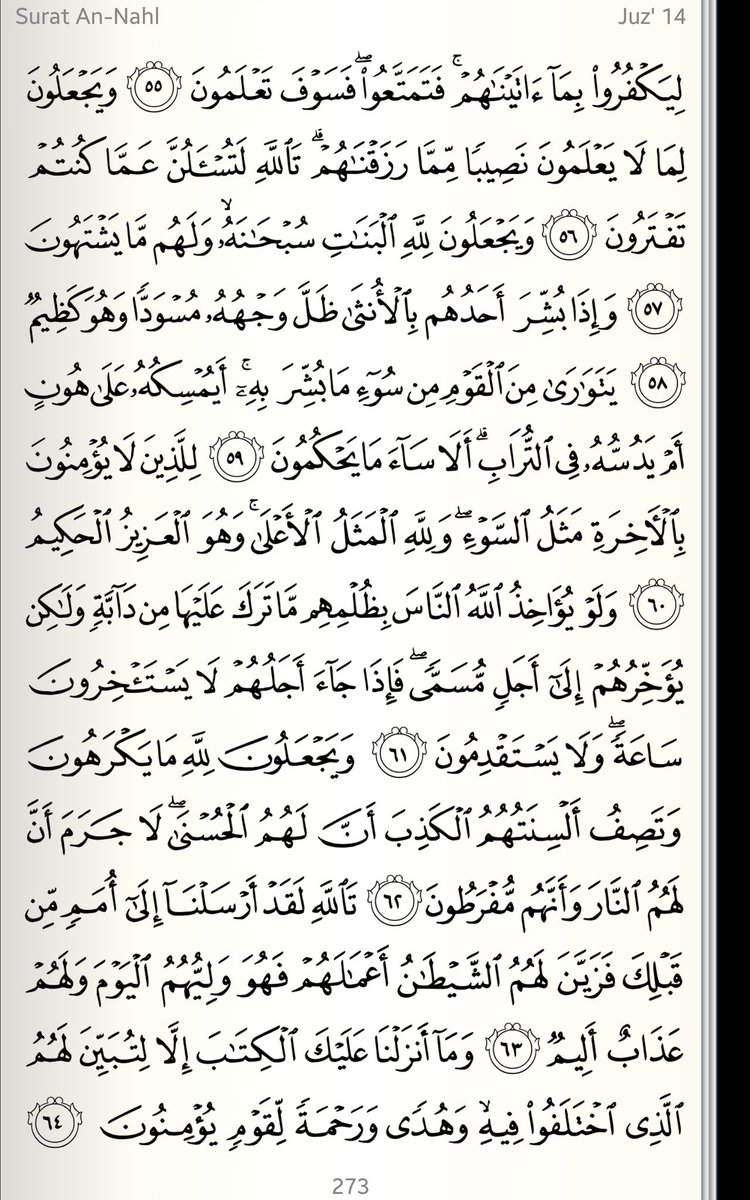 Surat An-Nahl
Juz' 14
لِيَكْفُرُوا۟ بِمَآ ءَاتَيْنَـٰهُمْ ۚ فَتَمَتَّعُوا۟ ۖ فَسَوْفَ تَعْلَمُونَ ٥٥ وَيَجْعَلُونَ
لِمَا لَا يَعْلَمُونَ نَصِيبًا مِّمَّا رَزَقْنَـٰهُمْ ۗ تَٱللَّهِ لَتُسْـَٔلُنَّ عَمَّا كُنتُمْ
تَفْتَرُونَ ٥٦ وَيَجْعَلُونَ لِلَّهِ ٱلْبَنَـٰتِ سُبْحَـٰنَهُۥ ۙ وَلَهُم مَّا يَشْتَهُونَ
٥٧ وَإِذَا بُشِّرَ أَحَدُهُم بِٱلْأُنثَىٰ ظَلَّ وَجْهُهُۥ مُسْوَدًّا وَهُوَ كَظِيمٌ
٥٨ يَتَوَٰرَىٰ مِنَ ٱلْقَوْمِ مِن سُوٓءِ مَا بُشِّرَ بِهِۦٓ ۚ أَيُمْسِكُهُۥ عَلَىٰ هُونٍ
أَمْ يَدُسُّهُۥ فِى ٱلتُّرَابِ ۗ أَلَا سَآءَ مَا يَحْكُمُونَ ٥٩ لِلَّذِينَ لَا يُؤْمِنُونَ
بِٱلْـَٔاخِرَةِ مَثَلُ ٱلسَّوْءِ ۖ وَلِلَّهِ ٱلْمَثَلُ ٱلْأَعْلَىٰ ۚ وَهُوَ ٱلْعَزِيزُ ٱلْحَكِيمُ
٦٠ وَلَوْ يُؤَاخِذُ ٱللَّهُ ٱلنَّاسَ بِظُلْمِهِم مَّا تَرَكَ عَلَيْهَا مِن دَآبَّةٍ وَلَـٰكِن
يُؤَخِّرُهُمْ إِلَىٰٓ أَجَلٍ مُّسَمًّى ۖ فَإِذَا جَآءَ أَجَلُهُمْ لَا يَسْتَـْٔخِرُونَ
سَاعَةً ۖ وَلَا يَسْتَقْدِمُونَ ٦١ وَيَجْعَلُونَ لِلَّهِ مَا يَكْرَهُونَ
وَتَصِفُ أَلْسِنَتُهُمُ ٱلْكَذِبَ أَنَّ لَهُمُ ٱلْحُسْنَىٰ ۖ لَا جَرَمَ أَنَّ
لَهُمُ ٱلنَّارَ وَأَنَّهُم مُّفْرَطُونَ ٦٢ تَٱللَّهِ لَقَدْ أَرْسَلْنَآ إِلَىٰٓ أُمَمٍ مِّن
قَبْلِكَ فَزَيَّنَ لَهُمُ ٱلشَّيْطَـٰنُ أَعْمَـٰلَهُمْ فَهُوَ وَلِيُّهُمُ ٱلْيَوْمَ وَلَهُمْ
عَذَابٌ أَلِيمٌ ٦٣ وَمَآ أَنزَلْنَا عَلَيْكَ ٱلْكِتَـٰبَ إِلَّا لِتُبَيِّنَ لَهُمُ
ٱلَّذِى ٱخْتَلَفُوا۟ فِيهِ ۙ وَهُدًى وَرَحْمَةً لِّقَوْمٍ يُؤْمِنُونَ ٦٤
273